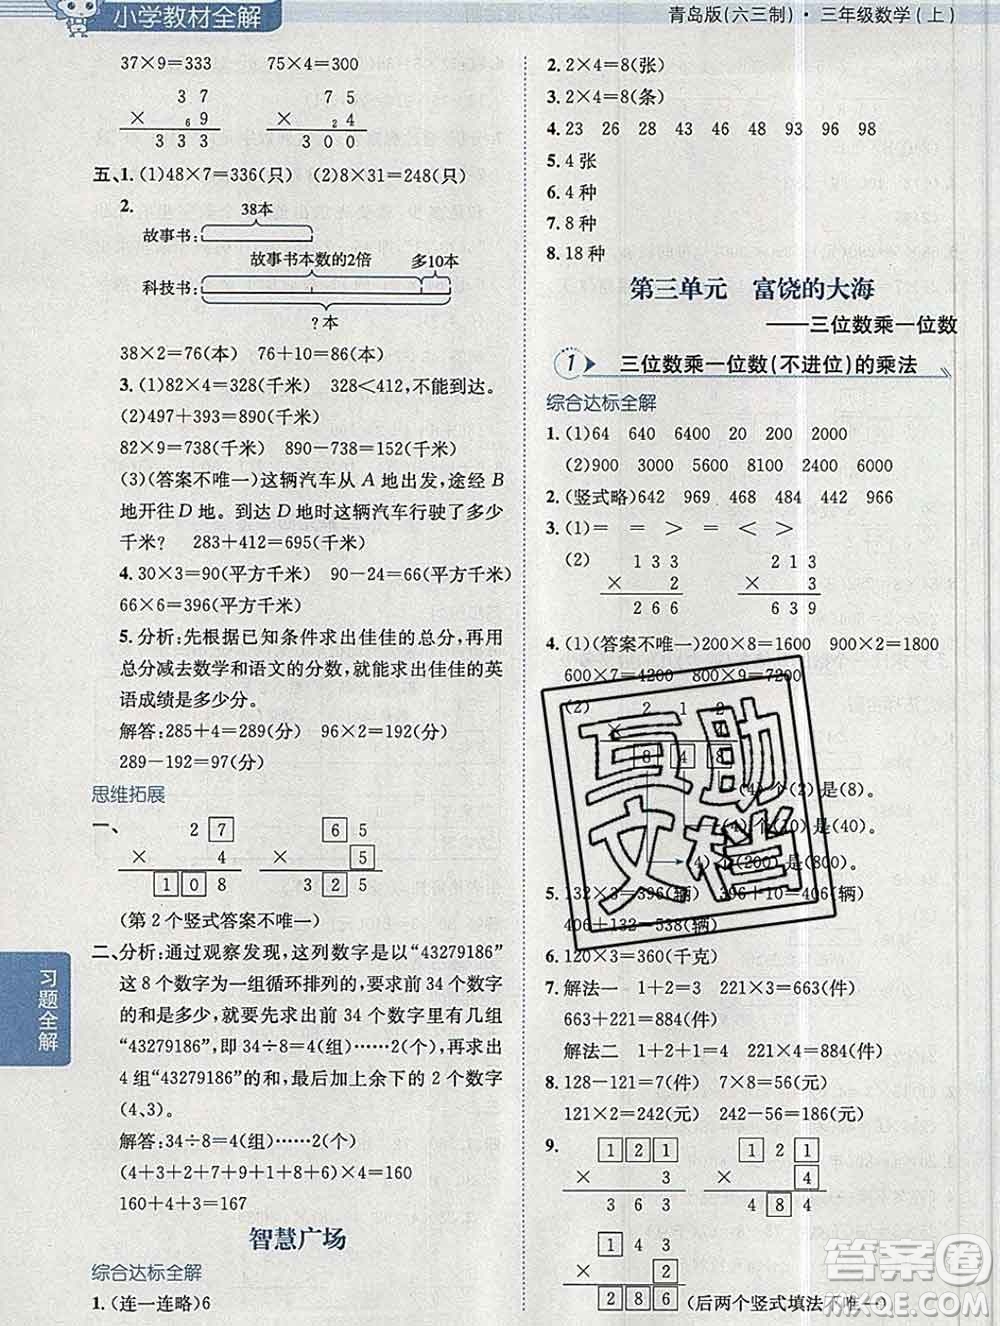 小学教材全解
青岛版(六三制)·三年级数学(上)
37×9=333 75×4=300
3 7 7 5
× 6 9 × 2 4
3 3 3 3 0 0
五、1. (1)48×7=336(只) (2)8×31=248(只)
2.
38本
故事书:
故事书本数的2倍 多10本
科技书:
?本
38×2=76(本) 76+10=86(本)
3. (1)4×82=328(千米) 328<412,不能到达。
(2)497+393=890(千米)
82×9=738(千米) 890-738=152(千米)
(3)(答案不唯一)这辆汽车从 A 地出发,途经 B
地开往 D 地。到达 D 地时这辆汽车行驶了多少
千米? 283+412=695(千米)
4. 30×3=90(平方千米) 90-24=66(平方千米)
66×6=396(平方千米)
5. 分析:先根据已知条件求出佳佳的总分,再用
总分减去数学和语文的分数,就能求出佳佳的英
语成绩是多少分。
解答:285+4=289(分) 96×2=192(分)
289-192=97(分)
思维拓展
一、
2 7 6 5
× 4 × 5
1 0 8 3 2 5
(第 2 个竖式答案不唯一)
二、分析:通过观察发现,这列数字是以“43279186”
这 8 个数字为一组循环排列的。要求前 34 个数字
的和是多少,就要先求出前 34 个数字里有几组
“43279186”,即 34÷8=4(组)……2(个),再求出
4 组“43279186”的和,最后加上余下的 2 个数字
(4、3)。
解答:34÷8=4(组)……2(个)
(4+3+2+7+9+1+8+6)×4=160
160+4+3=167
智慧广场
综合达标全解
1. (连一连略)6
习题全解
2. 2×4=8(张)
3. 2×4=8(条)
4. 23 26 28 43 48 93 96 98
5. 4 张
6. 4 种
7. 8 种
8. 18 种
第三单元 富饶的大海
——三位数乘一位数
1 三位数乘一位数(不进位)的乘法
综合达标全解
1. (1)64 640 6400 20 200 2000
(2)900 3000 600 2800 8000 6000
2. (竖式略)642 969 468 484 442 966
3. (1)= = > = < >
(2) 1 3 3 2 1 3
× 2 × 3
2 6 6 6 3 9
4. (1)(答案不唯一)200×8=1600 900×2=1800
600×7=4200 800×9=7200
(2) 2 1 2
×
8 4 8
(4)个(2)是(8)。
(4)个(10)是(40)。
(4)个(200)是(800)。
5. 132×3=396(辆) 396+10=406(辆)
406+132=538(辆)
6. 120×3=360(千克)
7. 解法一 1+2=3 221×3=663(件)
663+221=884(件)
解法二 1+2+1=4 221×4=884(件)
8. 128-121=7(件) 7×8=56(元)
121×2=242(元) 242-56=186(元)
9.
1 2 1 1 2 1
× 3 × 4
3 6 3 4 8 4
1 4 3
× 2
2 8 6 (后两个竖式填法不唯一)
互助
文档
答案圈